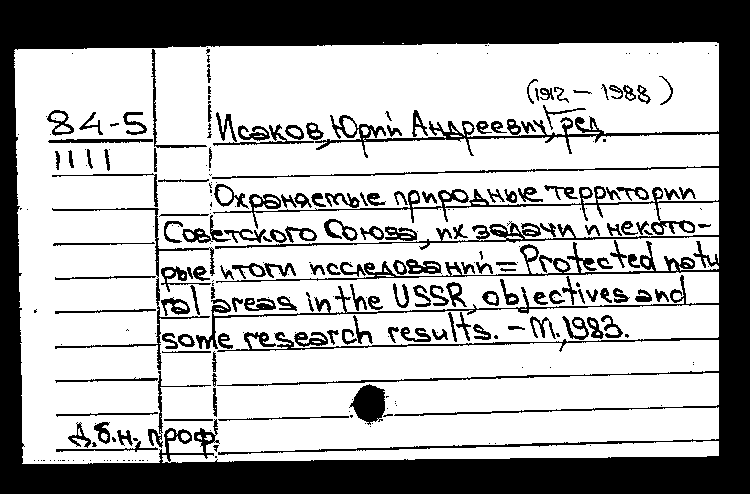 (1912 – 1988)
84-5 Исаков, Юрий Андреевич, ред.
1111
Охраняемые природные территории
Советского Союза, их задачи и некото-
рые итоги исследований = Protected natu
ral areas in the USSR, objectives and
some research results. – М., 1983.
Д.б.н., проф.